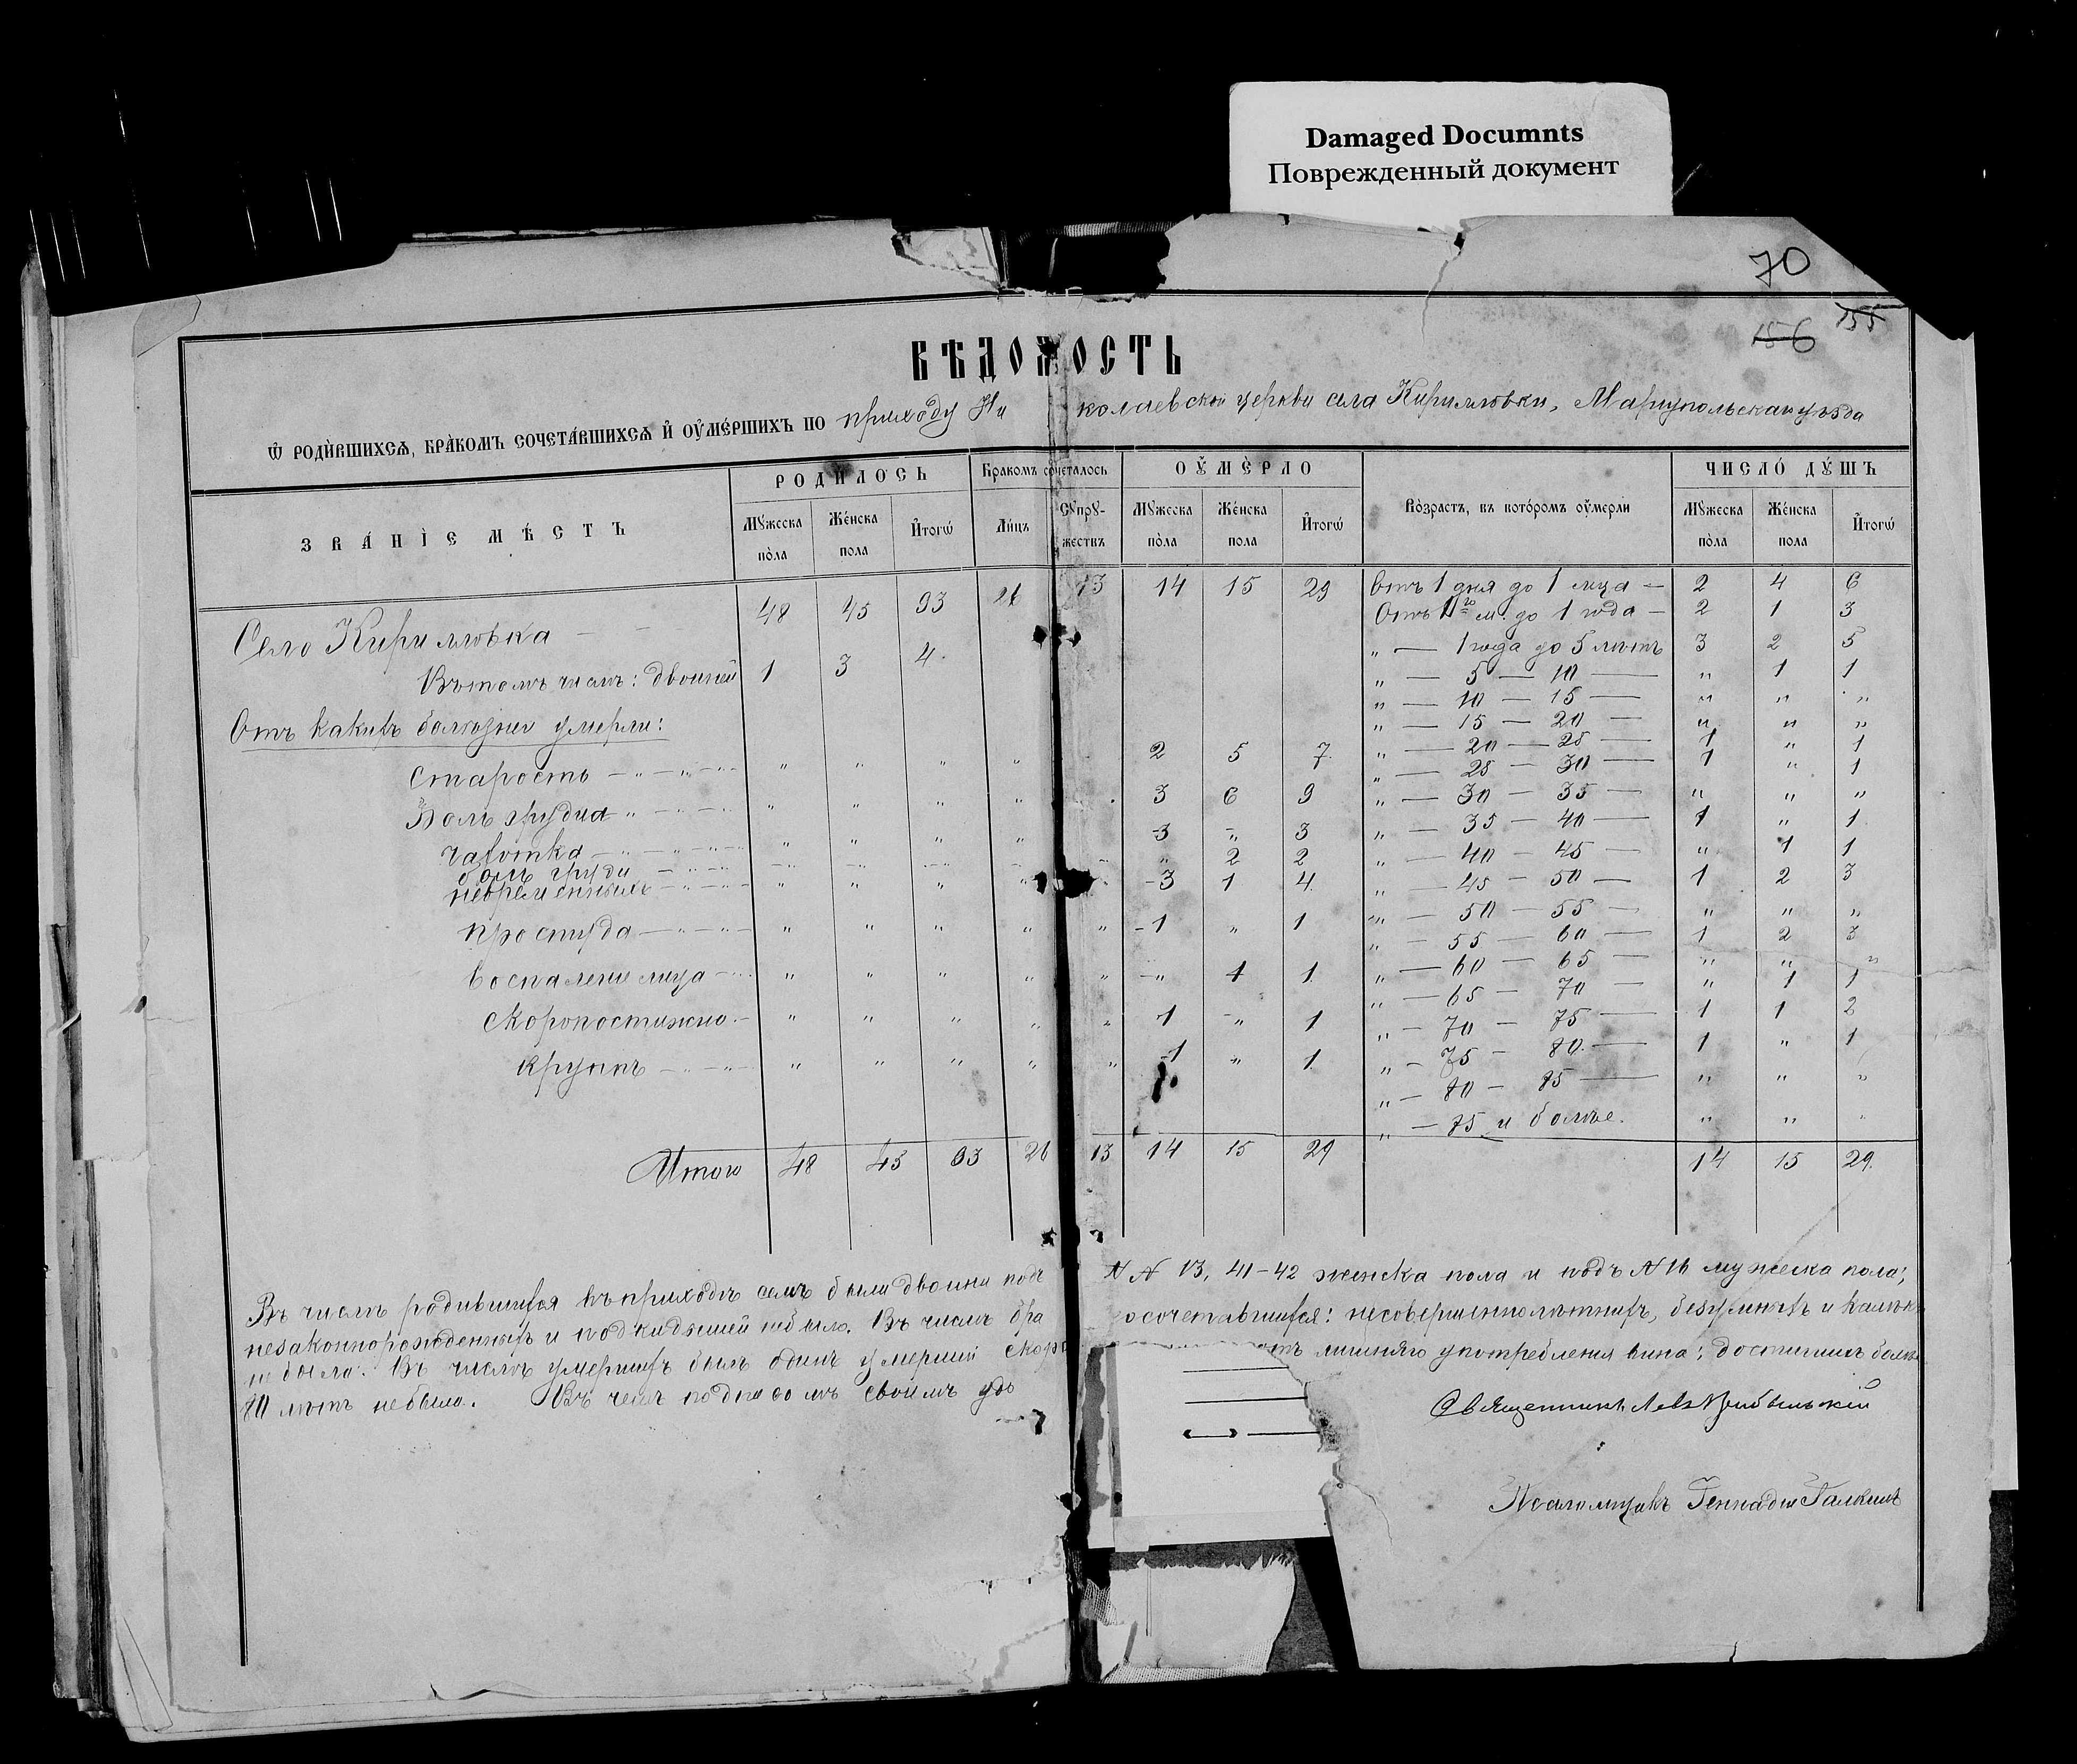 Damaged Documnts
Поврежденный документ
70
155
156
ВѢДОМОСТЬ
Ѡ РОДИВШИХСѦ, БРАКОМЪ СОЧЕТАВШИХСѦ И ОУМЕРШИХЪ ПО приходу Николаевской церкви села Кирилловки, Мариупольскаго уѣзда
ЗВАНІЕ МѢСТЪ
РОДИЛОСЬ
Бракомъ сочеталось
ОУМЕРЛО
Возрастъ, въ которомъ оумерли
ЧИСЛО ДУШЪ
Мужеска пола Женска пола Итогѡ Лицъ Супружествъ Мужеска пола Женска пола Итогѡ Мужеска пола Женска пола Итогѡ
Село Кирилловка — — 48 45 93 26 13 14 15 29
Въ томъ числѣ: двойней 1 3 4.
Отъ какихъ болѣзней умерли:
Старость — „ — „ — „ „ „ „ 2 5 7.
Боль грудная „ — „ — „ „ „ „ 3 6 9
Чахотка — „ — „ — „ „ „ „ 3 „ 3
боль груди — „ „ 2 2
— „ — „ „ „ „ 3 1 4.
простуда — „ — „ „ „ „ „ 1 „ 1
воспаленіе лица — „ „ „ „ „ „ 1 1.
скоропостижно — „ „ „ „ „ 1 „ 1
крупъ — „ — „ „ „ „ „ 1 „ 1.
Итого 48 45 93 26 13 14 15 29
Отъ 1 дня до 1 мца — 2 4 6
Отъ 1го м. до 1 года — 2 1 3
„ — 1 года до 5 лѣтъ 3 2 5
„ — 5 — 10 — „ 1 1
„ — 10 — 15 — „ „ „
„ — 15 — 20 — „ „ „
„ — 20 — 25 — 1 „ 1
„ — 25 — 30 — 1 „ 1
„ — 30 — 35 — „ „ „
„ — 35 — 40 — 1 „ 1
„ — 40 — 45 — „ 1 1
„ — 45 — 50 — 1 2 3
„ — 50 — 55 — „ „ „
„ — 55 — 60 — 1 2 3
„ — 60 — 65 — „ „ „
„ — 65 — 70 — „ 1 1
„ — 70 — 75 — 1 1 2
„ — 75 — 80 — 1 „ 1
„ — 80 — 85 — „ „ „
„ — 85 и болѣе. „ „ „
14 15 29.
Въ числѣ родившихся въ приходѣ семъ были двойни подъ NN 13, 41-42 женска пола и подъ N 16 мужеска пола;
незаконнорожденныхъ и подкидышей не было. Въ числѣ бра ко сочетавшихся: несовершеннолѣтнихъ, безумныхъ и калѣкъ
не было. Въ числѣ умершихъ былъ одинъ умершій скоро отъ лишняго употребленія вина; достигшихъ болѣе
80 лѣтъ не было. Въ чемъ подписомъ своимъ удо
Священникъ Левъ
Псаломщикъ Геннадій Галкинъ